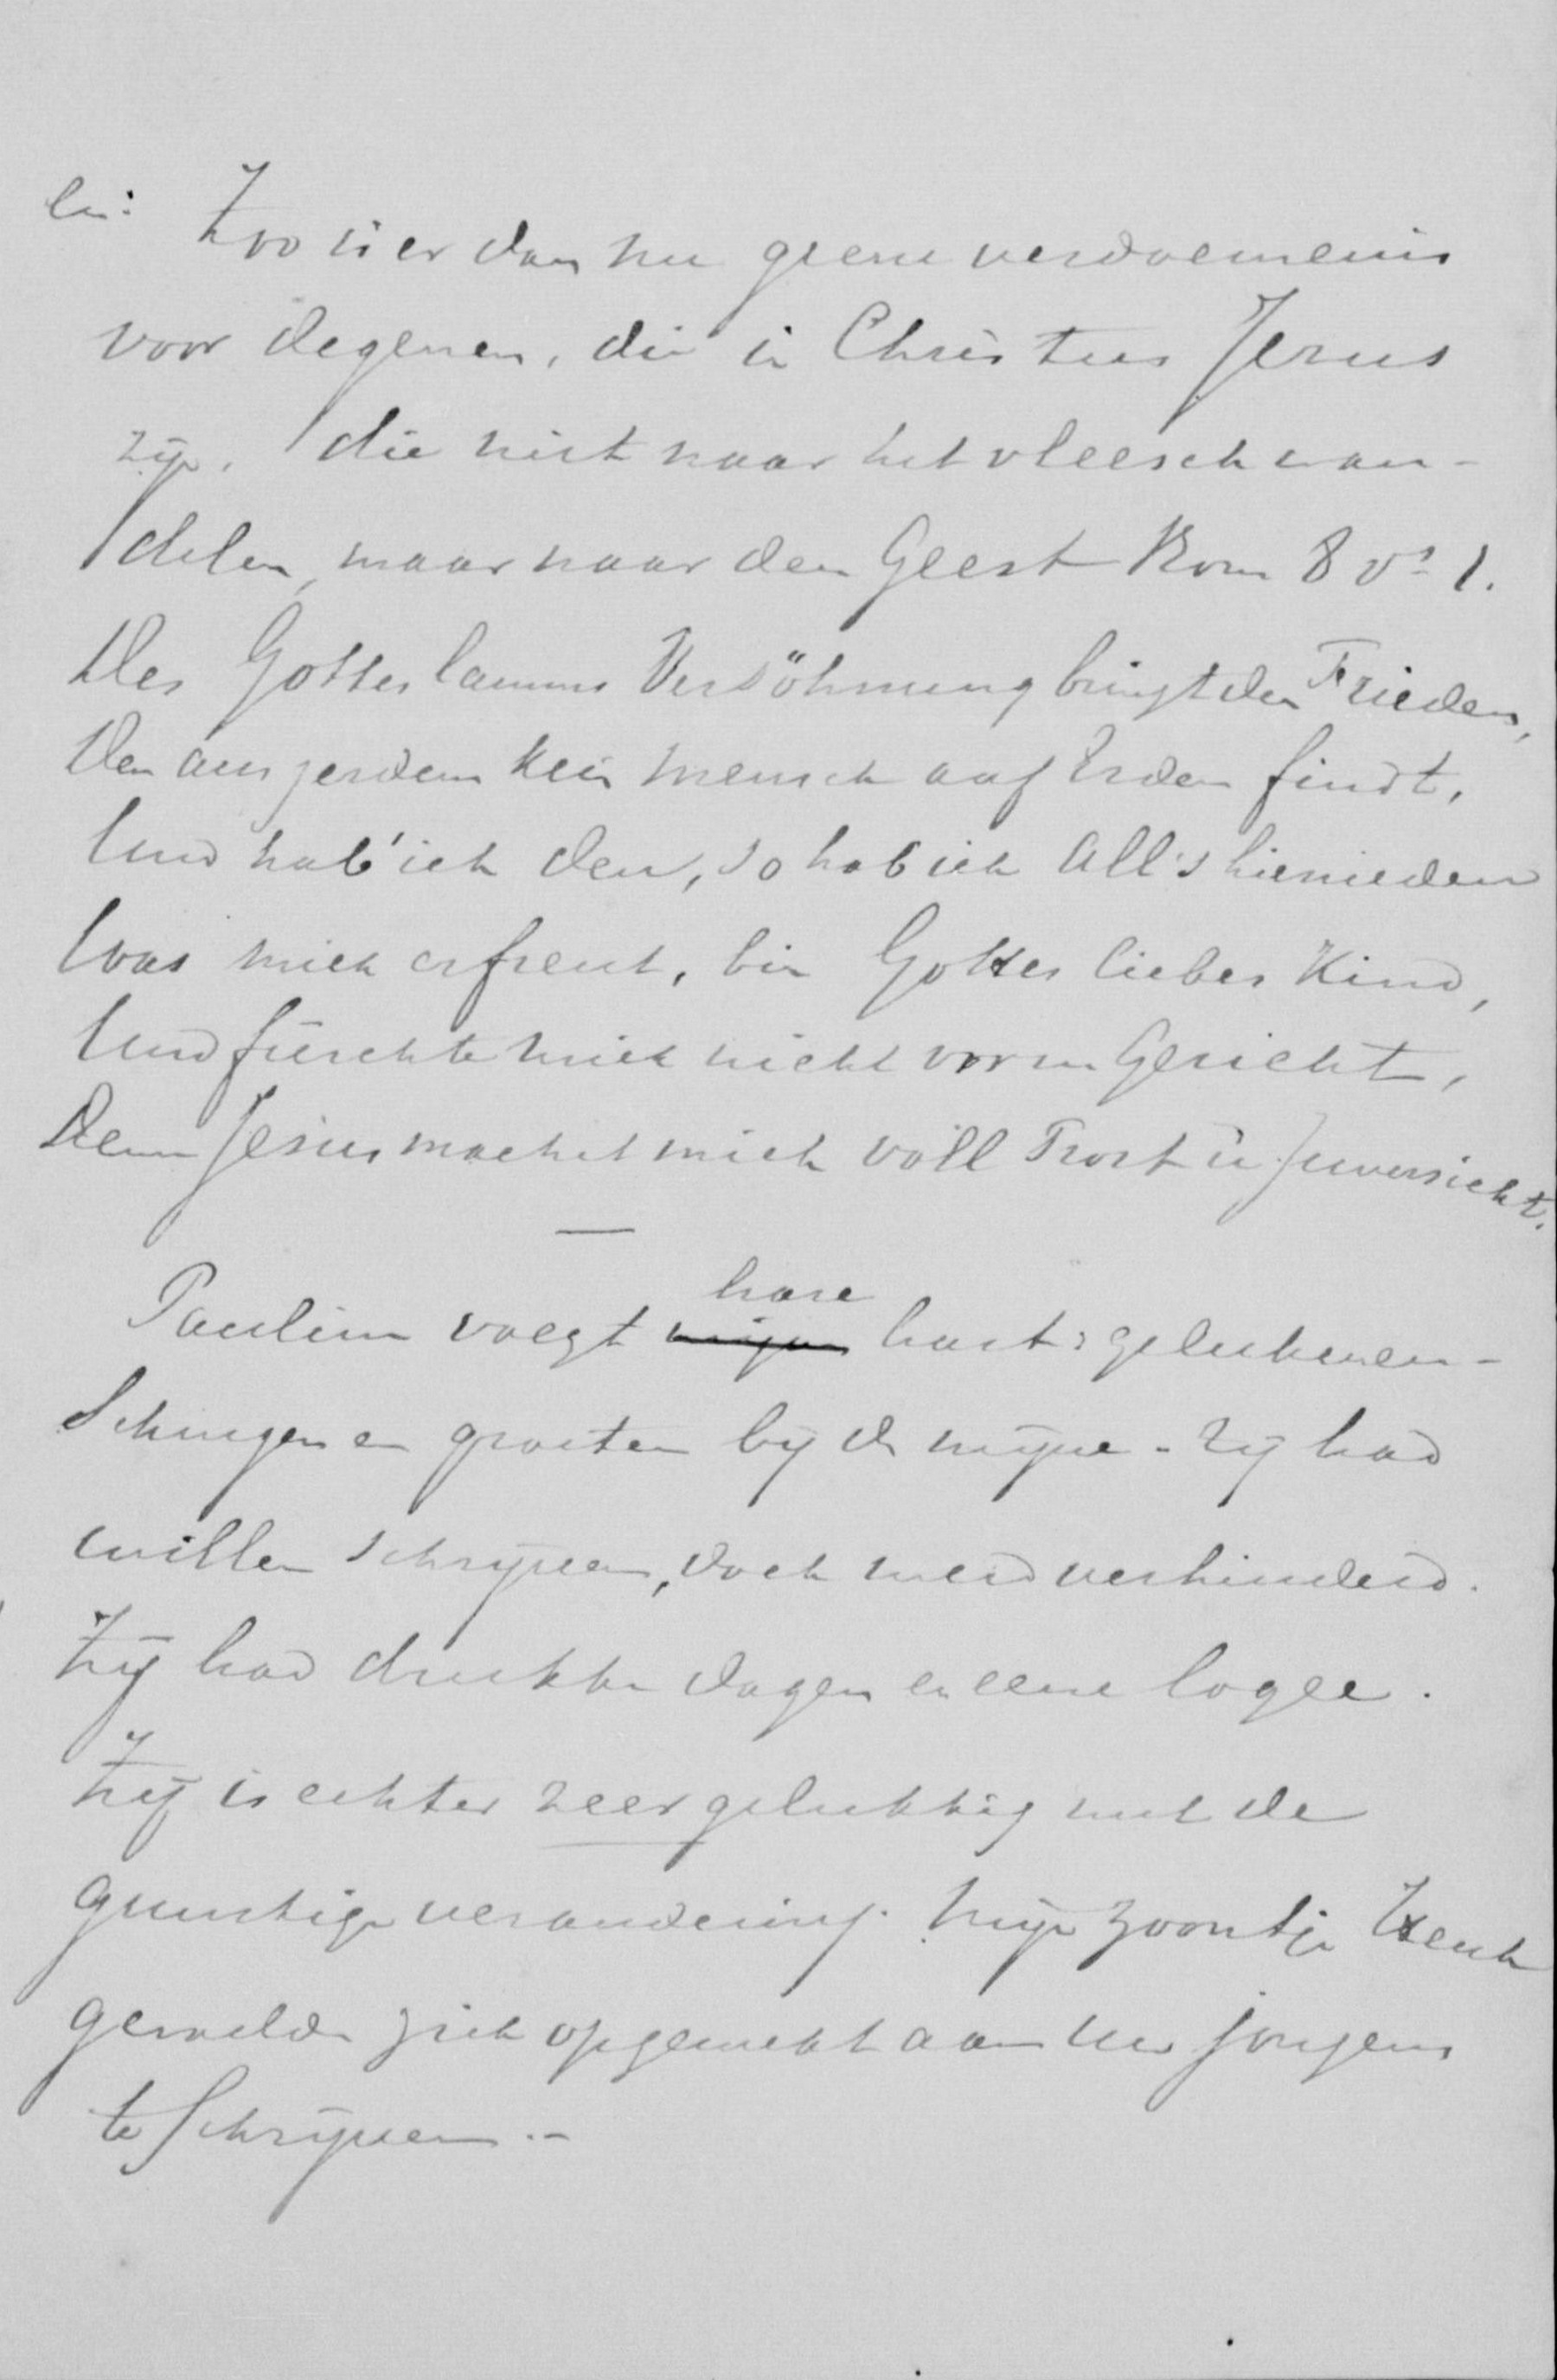 en: Zoo is er dan nu geene verdoemenis
voor degenen, die in Christus Jezus
zijn, die niet naar het vleesch wan-
delen, maar naar den Geest Rom 8 vs 1.
Des Gotteslamms Versöhnung bringt den Frieden,
Den ausserdem kein Mensch auf Erden findt,
Und hab' ich den, so hab ich All's hienieden
Was mich erfreut, bin Gottes liebes Kind,
Und fürchte mich nicht vorm Gericht,
Denn Jesus machet mich voll Trost u Zuversicht.
Pauline voegt mijne hare hart: gelukwen-
schingen en groeten bij de mijne - Zij had
willen schrijven, doch werd verhinderd.
Zij had drukke dagen en eene logee.
Zij is echter zeer gelukkig met de
gunstige verandering. Mijn zoontje Henk
gevoelde zich opgewekt aan uw jongens
te schrijven. -